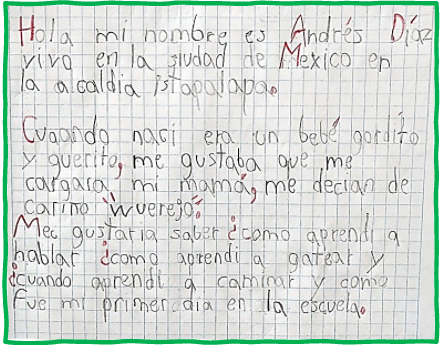 Hola mi nombre es Andrés Díaz
vivo en la siudad de Mexico en
la alcaldia istapalapa.
Cuaando naci era un bebé gordito
y guerito, me gustaba que me
cargara mi mamá, me decian de
cariño "wuerejo".
Mee gustaria saber ¿como aprendi a
hablar ¿como aprendi a gatear y
¿cuando aprendi a caminar y como
fue mi primer dia en la escuela.